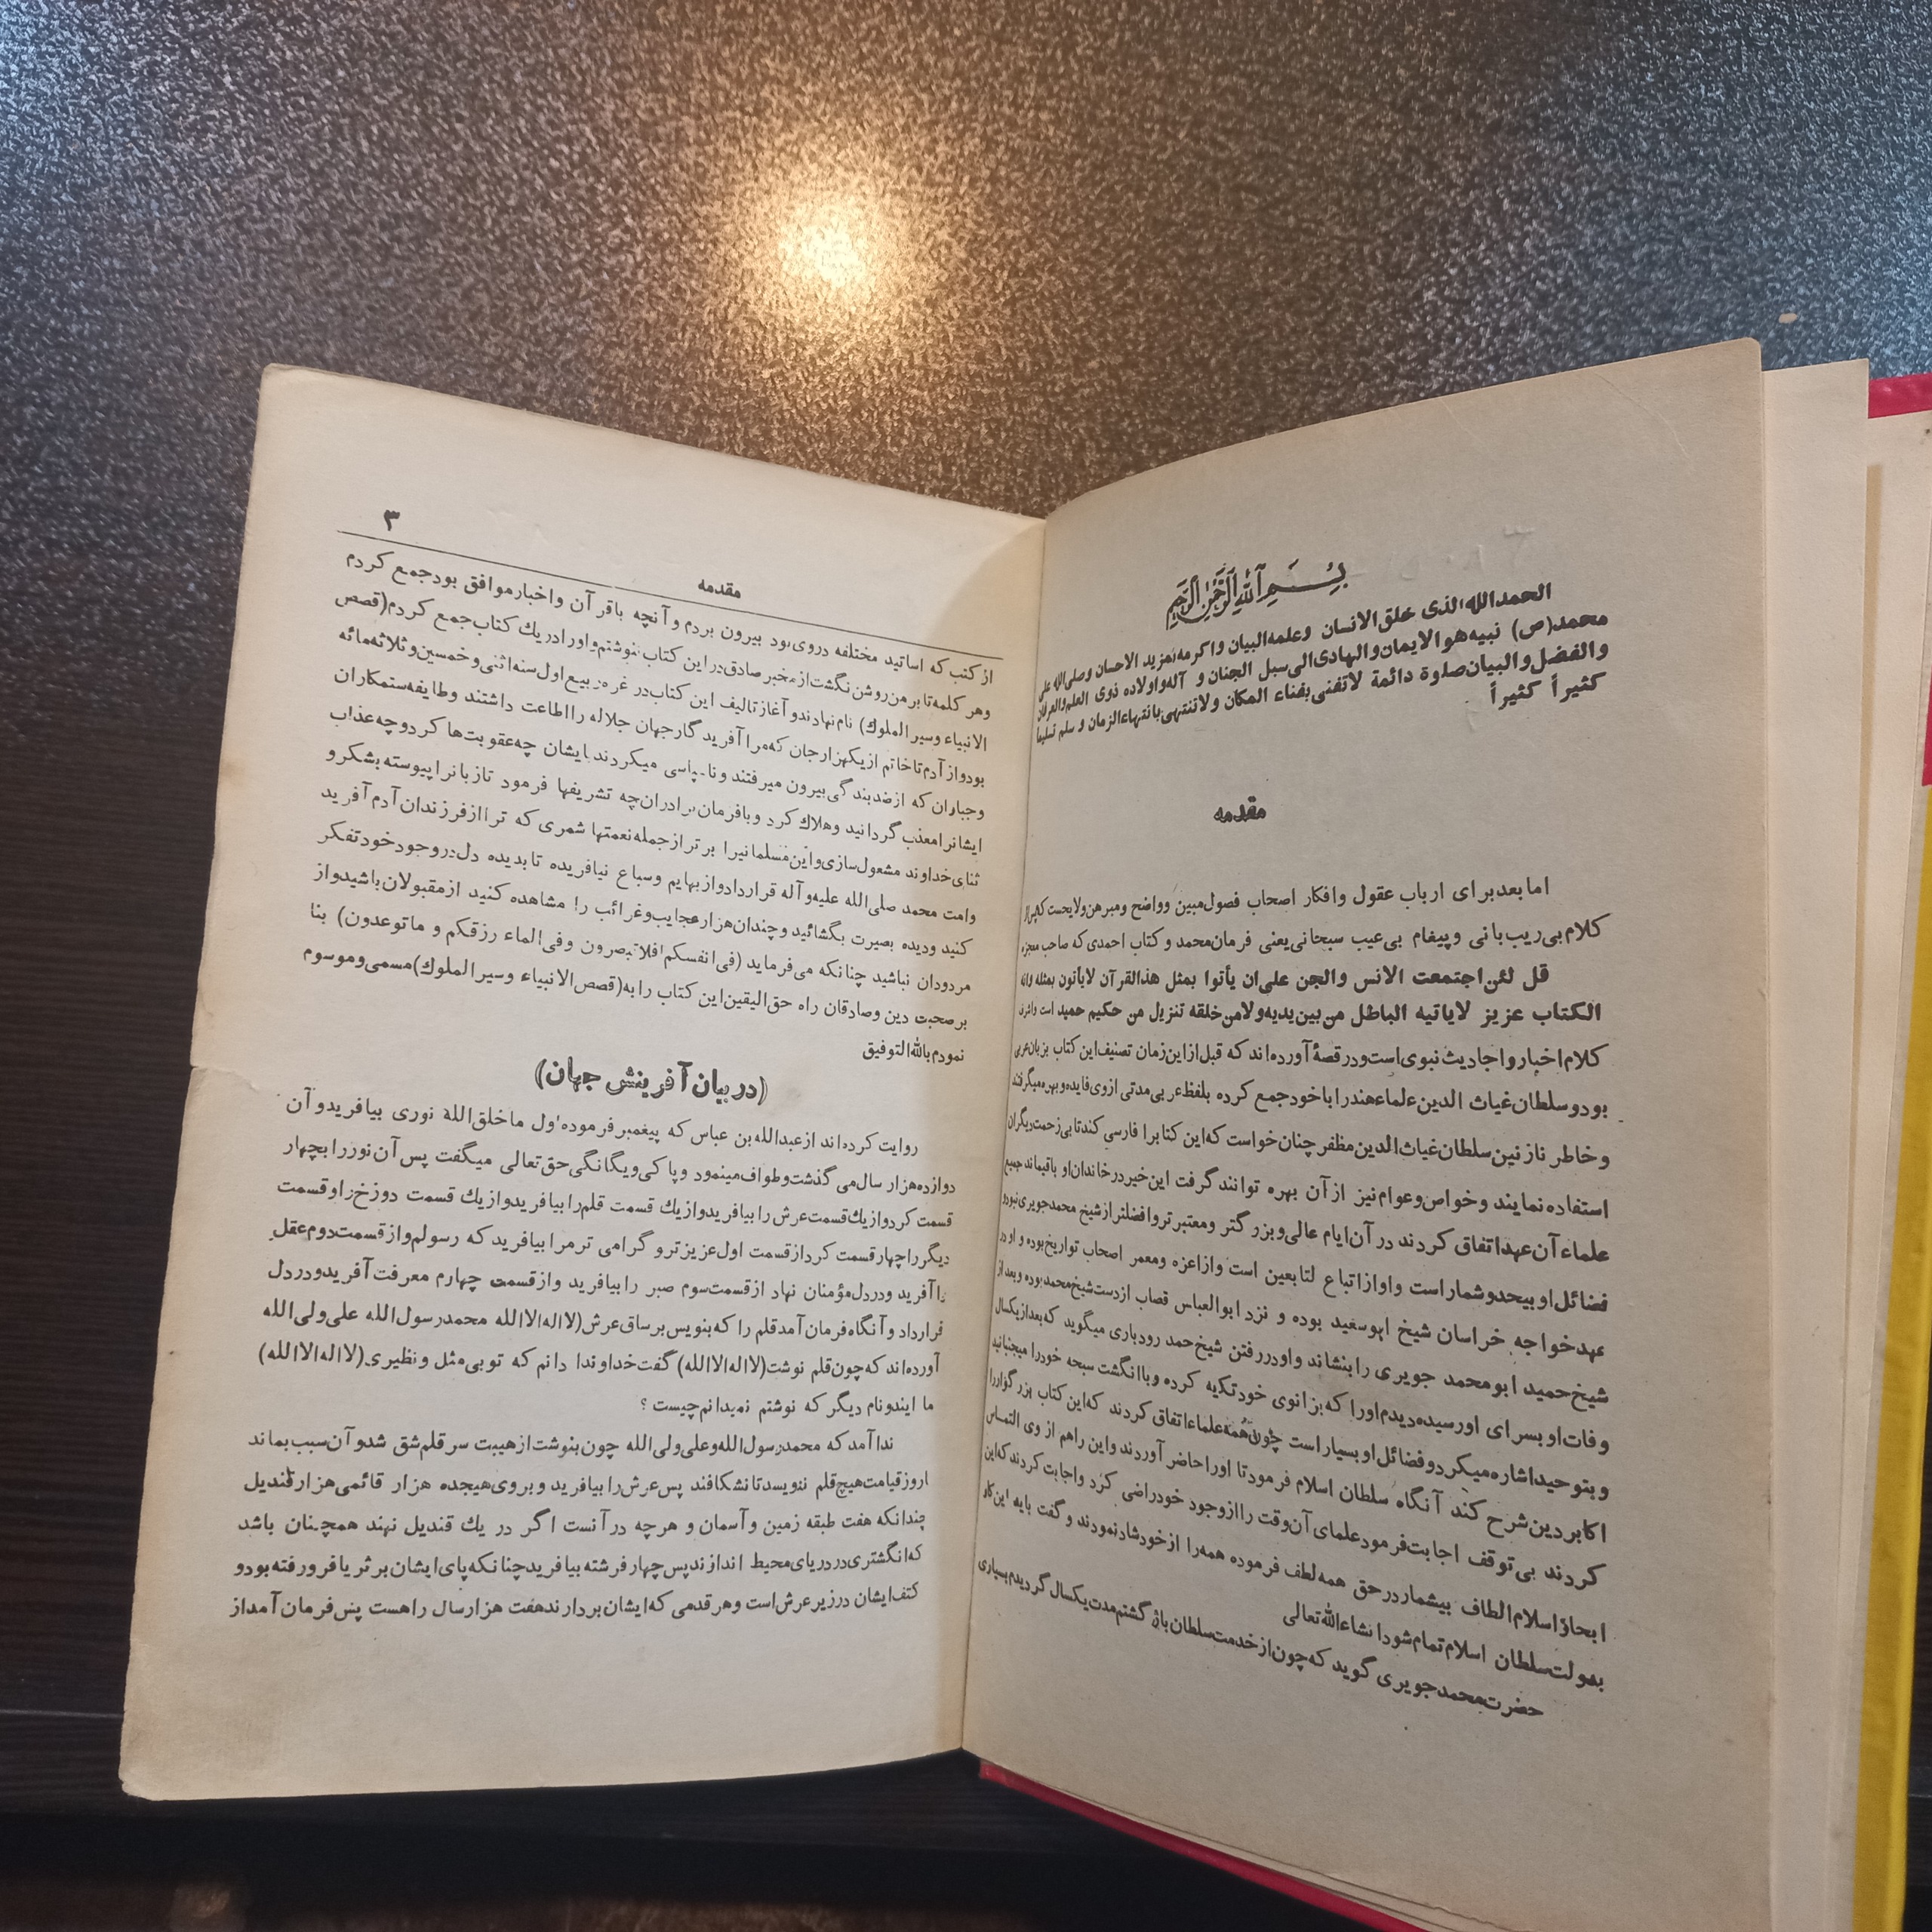 بسم الله الرحمن الرحیم
الحمدالله الذی خلق الانسان وعلمه البیان واکرمه بمزید الاحسان وصلی الله علی
محمد(ص) نبیه هو الایمان والهادی الی سبل الجنان و آله واولاده ذوی العلم والعرفان
والفضل والبیان صلوة دائمة لاتفنی بفناء المکان ولاتنتهی بانتهاء الزمان و سلم تسلیما
کثیراً کثیراً
مقدمه
اما بعد برای ارباب عقول وافکار اصحاب فصول مبین وواضح ومبرهن ولایحست که پس از
کلام بی ریب بانی وپیغام بی عیب سبحانی یعنی فرمان محمد و کتاب احمدی که صاحب معجزه
قل لئن اجتمعت الانس والجن علی ان یأتوا بمثل هذالقرآن لایأتون بمثله وانه
الکتاب عزیز لایاتیه الباطل من بین یدیه ولامن خلقه تنزیل من حکیم حمید است
کلام اخبار واحادیث نبوی است ودر قصهٔ آورده اند که قبل از این زمان تصنیف این کتاب بزبان عربی
بود و سلطان غیاث الدین علماء هند را با خود جمع کرده بلفظ عربی مدتی از وی فایده و بهره میگرفتند
و خاطر نازنین سلطان غیاث الدین مظفر چنان خواست که این کتابرا فارسی کند تا بی زحمت دیگران
استفاده نمایند و خواص و عوام نیز از آن بهره توانند گرفت این خیر در خاندان او باقیماند جمیع
علماء آن عهد اتفاق کردند در آن ایام عالی و بزرگتر ومعتبر تر و افضلتر از شیخ محمد جویری نبوده
فضائل او بیحد و شمار است و او از اتباع لتابعین است واز اعزه ومعمر اصحاب تواریخ بوده و او در
عهد خواجه خراسان شیخ ابوسعید بوده و نزد ابوالعباس قصاب از دست شیخ محمد بوده و بعد از
شیخ حمید ابو محمد جویری را بنشاند و او در رفتن شیخ حمد رودباری میگوید که بعد از یکسال
وفات او بسرای او رسیده دیدم او را که بزانوی خود تکیه کرده و با انگشت سبحه خود را میجنبانید
و بتوحید اشاره میکرد و فضائل او بسیار است چون همه علماء اتفاق کردند که این کتاب بزرگوار را
اکابر دین شرح کند آنگاه سلطان اسلام فرمود تا او را حاضر آوردند و این راهم از وی التماس
کردند بی توقف اجابت فرمود علمای آن وقت را از وجود خود راضی کرد و اجابت کردند که این
ابحاذ اسلام الطاف بیشمار در حق همه لطف فرموده همه را از خود شاد نمودند و گفت باید این کار
بدولت سلطان اسلام تمام شود انشاءالله تعالی
حضرت محمد جویری گوید که چون از خدمت سلطان باز گشتم مدت یکسال گردیدم بسیاری
مقدمه ۳
از کتب که اساتید مختلفه در وی بود بیرون بردم و آنچه باقرآن و اخبار موافق بود جمع کردم
وهر کلمه تا بر من روشن نگشت از مخبر صادق در این کتاب ننوشتم و او را در یك کتاب جمع کردم (قصص
الانبیاء وسیر الملوك) نام نهادند و آغاز تالیف این کتاب در غره ربیع اول سنه اثنی و خمسین و ثلاثه مائه
بود و از آدم تا خاتم از یکهزار جان که مرا آفرید گار جهان جلاله را اطاعت داشتند وطایفه ستمکاران
وجباران که از ضد بندگی بیرون میرفتند و ناسپاسی میکردند بایشان چه عقوبت ها کرد و چه عذاب
ایشانرا معذب گردانید و هلاك کرد و بافرمان برادران چه تشریفها فرمود تا زبانرا پیوسته بشکر و
ثنای خداوند مشعول سازی و این مسلمانیرا برتر از جمله نعمتها شمری که ترا از فرزندان آدم آفرید
وامت محمد صلی الله علیه و آله قرارداد و از بهایم وسباع نیافریده تا بدیده دل در وجود خود تفکر
کنید ودیده بصیرت بگشائید و چندان هزار عجایب و غرائب را مشاهده کنید از مقبولان باشید و از
مردودان نباشید چنانکه می فرماید (فی انفسکم افلا تبصرون وفی الماء رزقکم و ماتوعدون) بنا
بر صحبت دین وصادقان راه حق الیقین این کتاب را به (قصص الانبیاء وسیر الملوك) مسمی و موسوم
نمودم بالله التوفیق
(در بیان آفرینش جهان)
روایت کرده اند از عبدالله بن عباس که پیغمبر فرموده اول ما خلق الله نوری بیافرید و آن
دوازده هزار سال می گذشت و طواف مینمود وپاکی ویگانگی حق تعالی میگفت پس آن نور را بچهار
قسمت کرد و از یك قسمت عرش را بیافرید و از یك قسمت قلم را بیافرید و از یك قسمت دوزخ را و قسمت
دیگر را چهار قسمت کرد از قسمت اول عزیز تر و گرامی تر مرا بیافرید که رسولم و از قسمت دوم عقل
را آفرید ودر دل مؤمنان نهاد از قسمت سوم صبر را بیافرید واز قسمت چهارم معرفت آفرید و در دل
قرارداد و آنگاه فرمان آمد قلم را که بنویس بر ساق عرش (لااله الاالله محمد رسول الله علی ولی الله
آورده اند که چون قلم نوشت (لااله الاالله) گفت خداوندا دانم که تو بی مثل و نظیری (لااله الاالله)
ما ایندو نام دیگر که نوشتم نمیدانم چیست ؟
ندا آمد که محمد رسول الله وعلی ولی الله چون بنوشت از هیبت سر قلم شق شد و آن سبب بماند
تا روز قیامت هیچ قلم ننویسد تا نشکافند پس عرش را بیافرید و بروی هیجده هزار قائمی هزار قندیل
چندانکه هفت طبقه زمین و آسمان و هرچه در آنست اگر در یك قندیل نهند همچنان باشد
که انگشتری در دریای محیط اندازند پس چهار فرشته بیافرید چنانکه پای ایشان بر ثریا فرو رفته بود و
کتف ایشان در زیر عرش است وهر قدمی که ایشان بردارند هفت هزار سال راهست پس فرمان آمد از